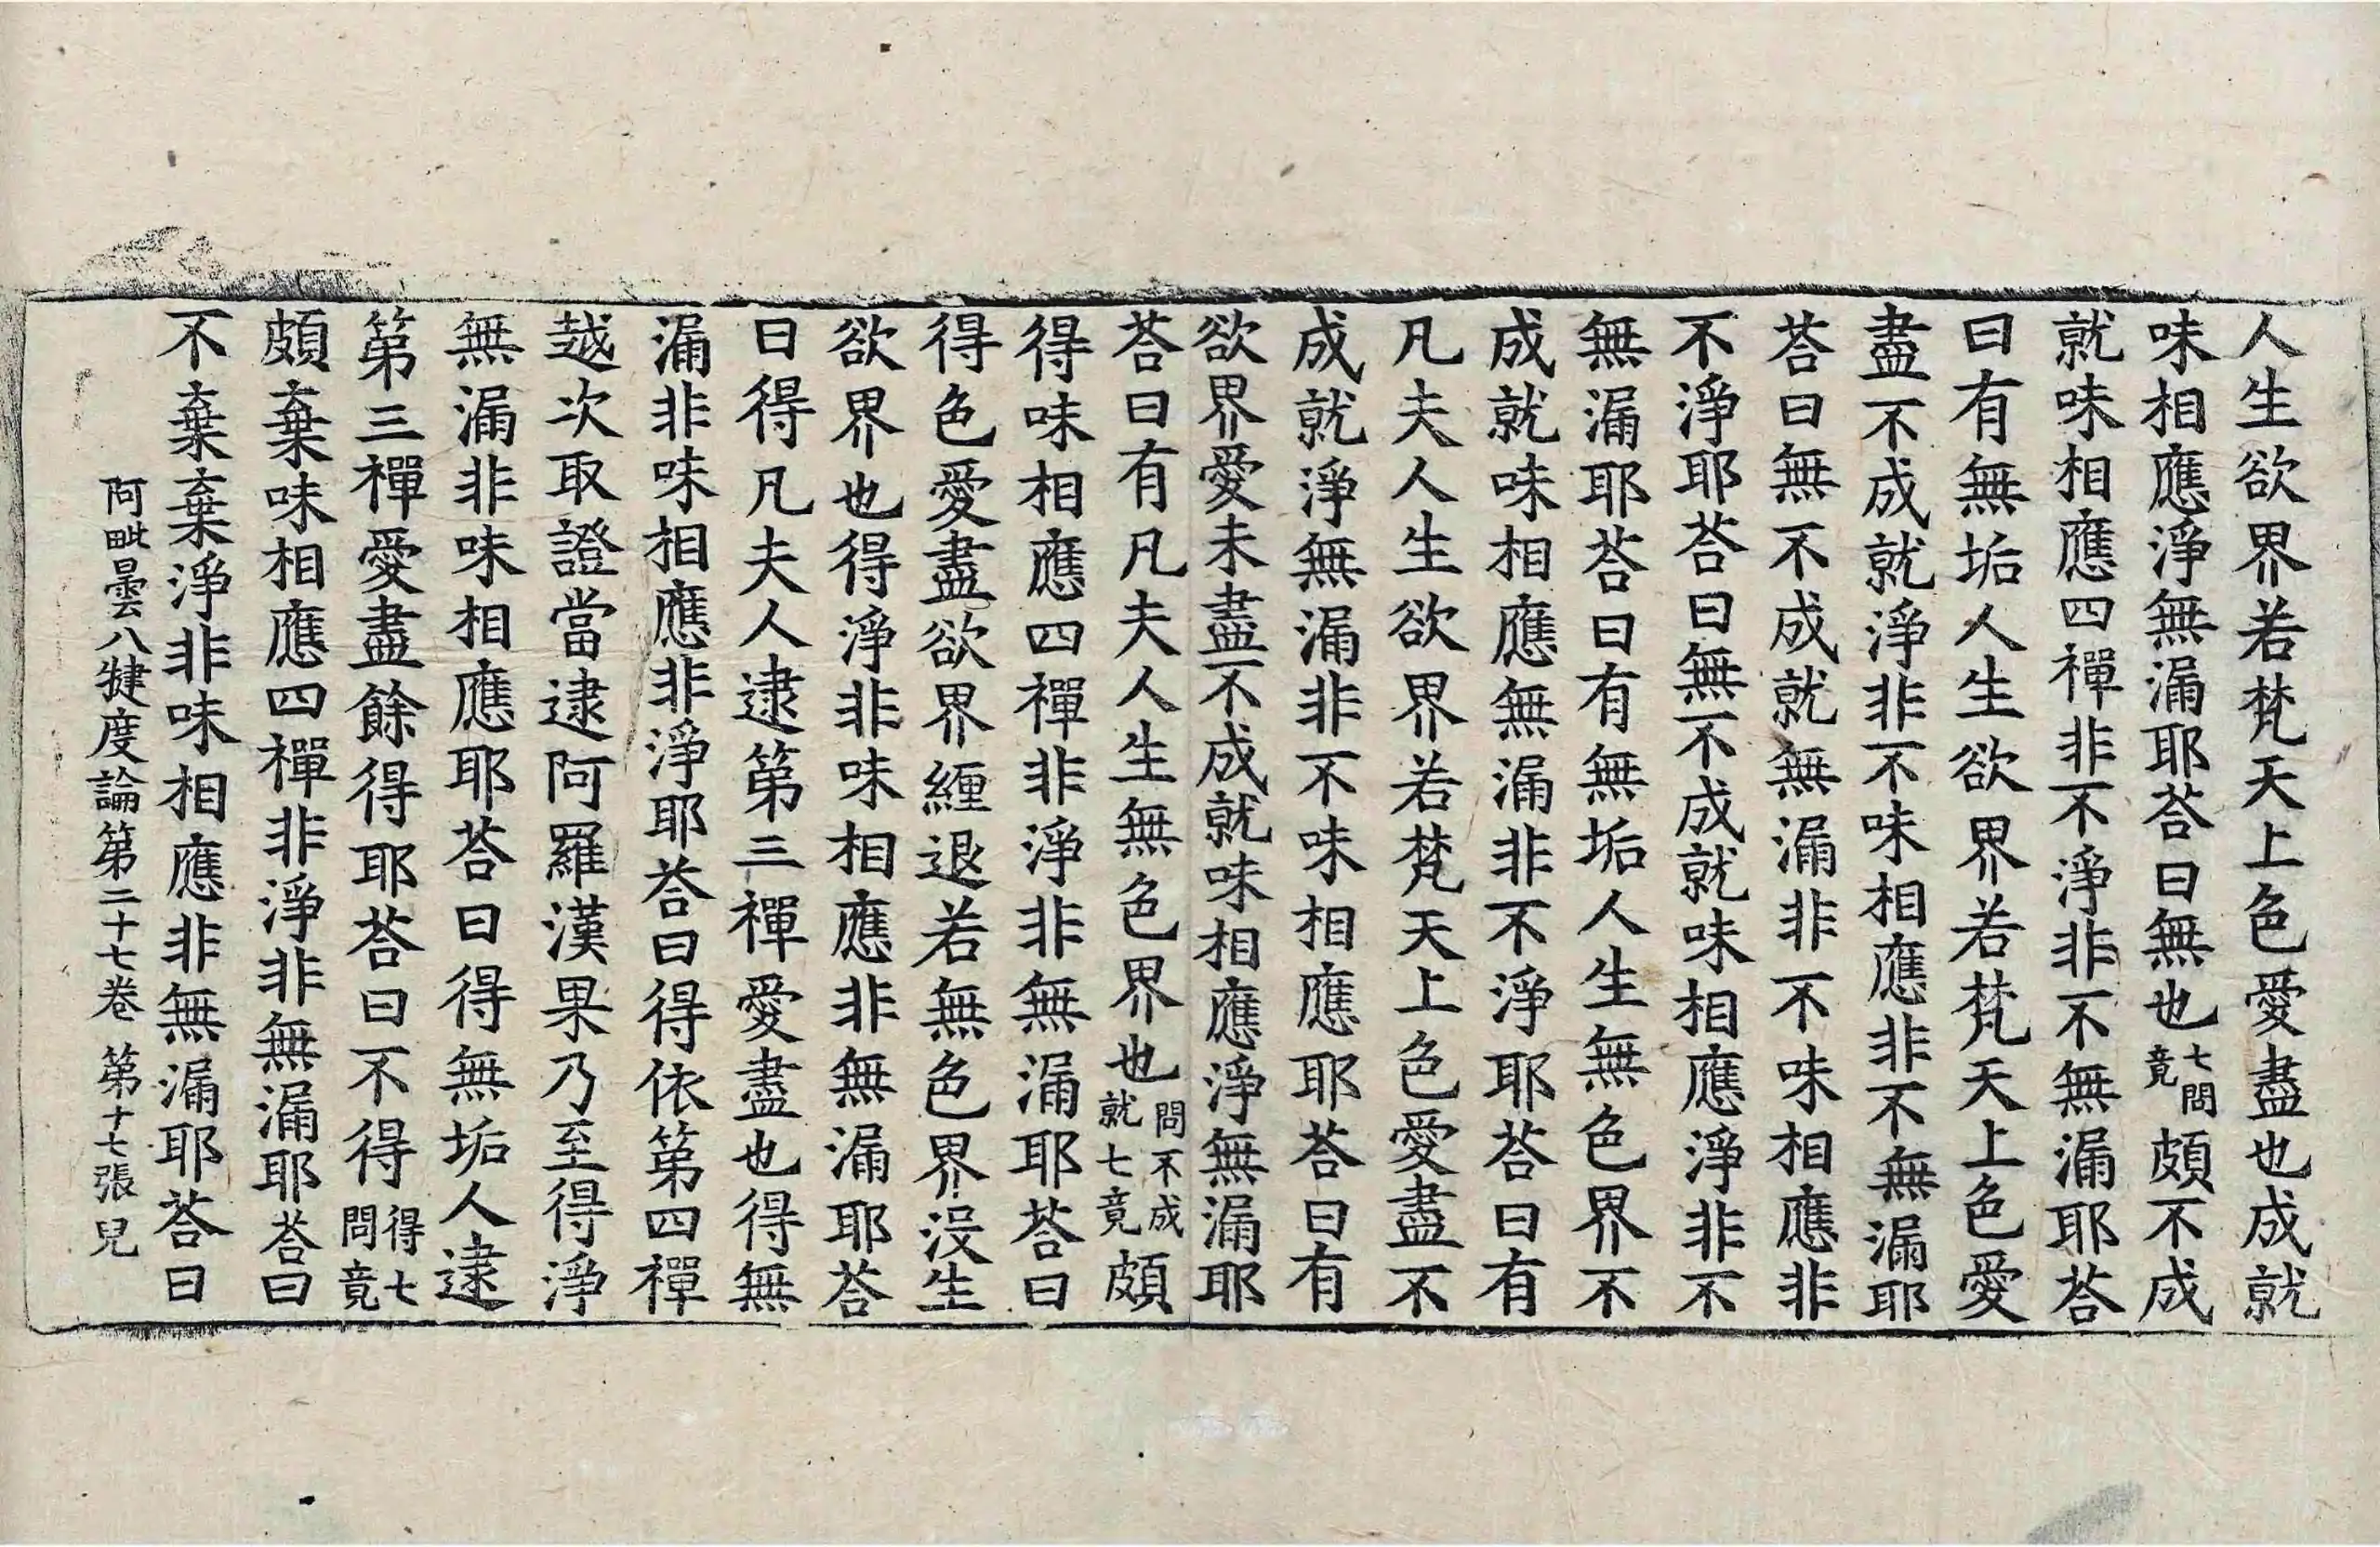 人生欲界若梵天上色愛盡也成就
味相應淨無漏耶荅曰無也七問竟頗不成
就味相應四禪非不淨非不無漏耶荅
曰有無垢人生欲界若梵天上色愛
盡不成就淨非不味相應非不無漏耶
荅曰無不成就無漏非不味相應非
不淨耶荅曰無不成就味相應淨非不
無漏耶荅曰有無垢人生無色界不
成就味相應無漏非不淨耶荅曰有
凡夫人生欲界若梵天上色愛盡不
成就淨無漏非不味相應耶荅曰有
欲界愛未盡不成就味相應淨無漏耶
荅曰有凡夫人生無色界也問不成就七竟頗
得味相應四禪非淨非無漏耶荅曰
得色愛盡欲界纏退若無色界沒生
欲界也得淨非味相應非無漏耶荅
曰得凡夫人逮第三禪愛盡也得無
漏非味相應非淨耶荅曰得依第四禪
越次取證當逮阿羅漢果乃至得淨
無漏非味相應耶荅曰得無垢人逮
第三禪愛盡餘得耶荅曰不得得七問竟
頗棄味相應四禪非淨非無漏耶荅曰
不棄棄淨非味相應非無漏耶荅曰
阿毗曇八犍度論第二十七卷 第十七張 兒